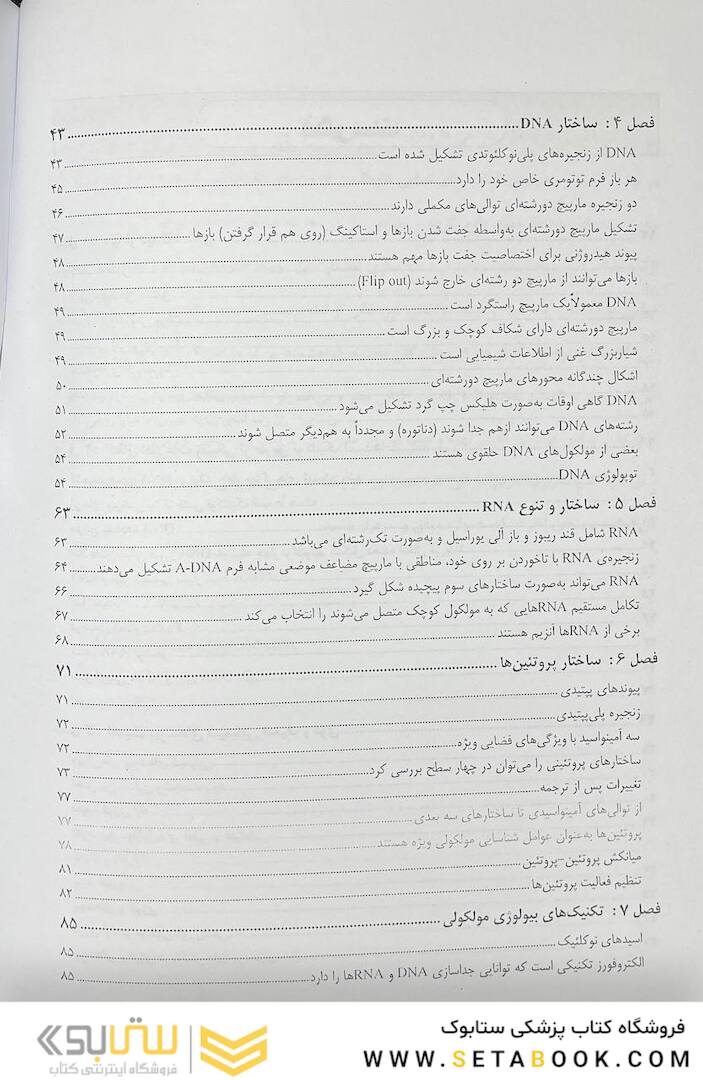 فصل ۴: ساختار DNA ۴۳
DNA از زنجیره‌های پلی‌نوکلئوتدی تشکیل شده است ۴۳
هر باز فرم توتومری خاص خود را دارد ۴۵
دو زنجیره مارپیچ دورشته‌ای توالی‌های مکملی دارند ۴۶
تشکیل مارپیچ دورشته‌ای به‌واسطه جفت شدن بازها و استاکینگ (روی هم قرار گرفتن) بازها ۴۷
پیوند هیدروژنی برای اختصاصیت جفت بازها مهم هستند ۴۸
بازها می‌توانند از مارپیچ دو رشته‌ای خارج شوند (Flip out) ۴۸
DNA معمولاًیک مارپیچ راستگرد است ۴۹
مارپیچ دورشته‌ای دارای شکاف کوچک و بزرگ است ۴۹
شیاربزرگ غنی از اطلاعات شیمیایی است ۴۹
اشکال چندگانه محورهای مارپیچ دورشته‌ای ۵۰
DNA گاهی اوقات به‌صورت هلیکس چپ گرد تشکیل می‌شود ۵۱
رشته‌های DNA می‌توانند ازهم جدا شوند (دناتوره) و مجدداً به هم‌دیگر متصل شوند ۵۲
بعضی از مولکول‌های DNA حلقوی هستند ۵۴
توپولوژی DNA ۵۴
فصل ۵: ساختار و تنوع RNA ۶۳
RNA شامل قند ریبوز و باز آلی یوراسیل و به‌صورت تک‌رشته‌ای می‌باشد ۶۳
زنجیره‌ی RNA با تاخوردن بر روی خود، مناطقی با مارپیچ مضاعف موضعی مشابه فرم A-DNA تشکیل می‌دهند ۶۴
RNA می‌تواند به‌صورت ساختارهای سوم پیچیده شکل گیرد ۶۶
تکامل مستقیم RNAهایی که به مولکول کوچک متصل می‌شوند را انتخاب می‌کند ۶۷
برخی از RNAها آنزیم هستند ۶۸
فصل ۶: ساختار پروتئین‌ها ۷۱
پیوندهای پپتیدی ۷۱
زنجیره پلی‌پپتیدی ۷۲
سه آمینواسید با ویژگی‌های فضایی ویژه ۷۲
ساختارهای پروتئینی را می‌توان در چهار سطح بررسی کرد ۷۳
تغییرات پس از ترجمه ۷۷
از توالی‌های آمینواسیدی تا ساختارهای سه بعدی ۷۷
پروتئین‌ها به‌عنوان عوامل شناسایی مولکولی ویژه هستند ۷۸
میانکش پروتئین-پروتئین ۸۱
تنظیم فعالیت پروتئین‌ها ۸۲
فصل ۷: تکنیک‌های بیولوژی مولکولی ۸۵
اسیدهای نوکلئیک ۸۵
الکتروفورز تکنیکی است که توانایی جداسازی DNA و RNAها را دارد ۸۵
فروشگاه کتاب پزشکی ستابوک
WWW.SETABOOK.COM
ستابوک
فروشگاه اینترنتی کتاب